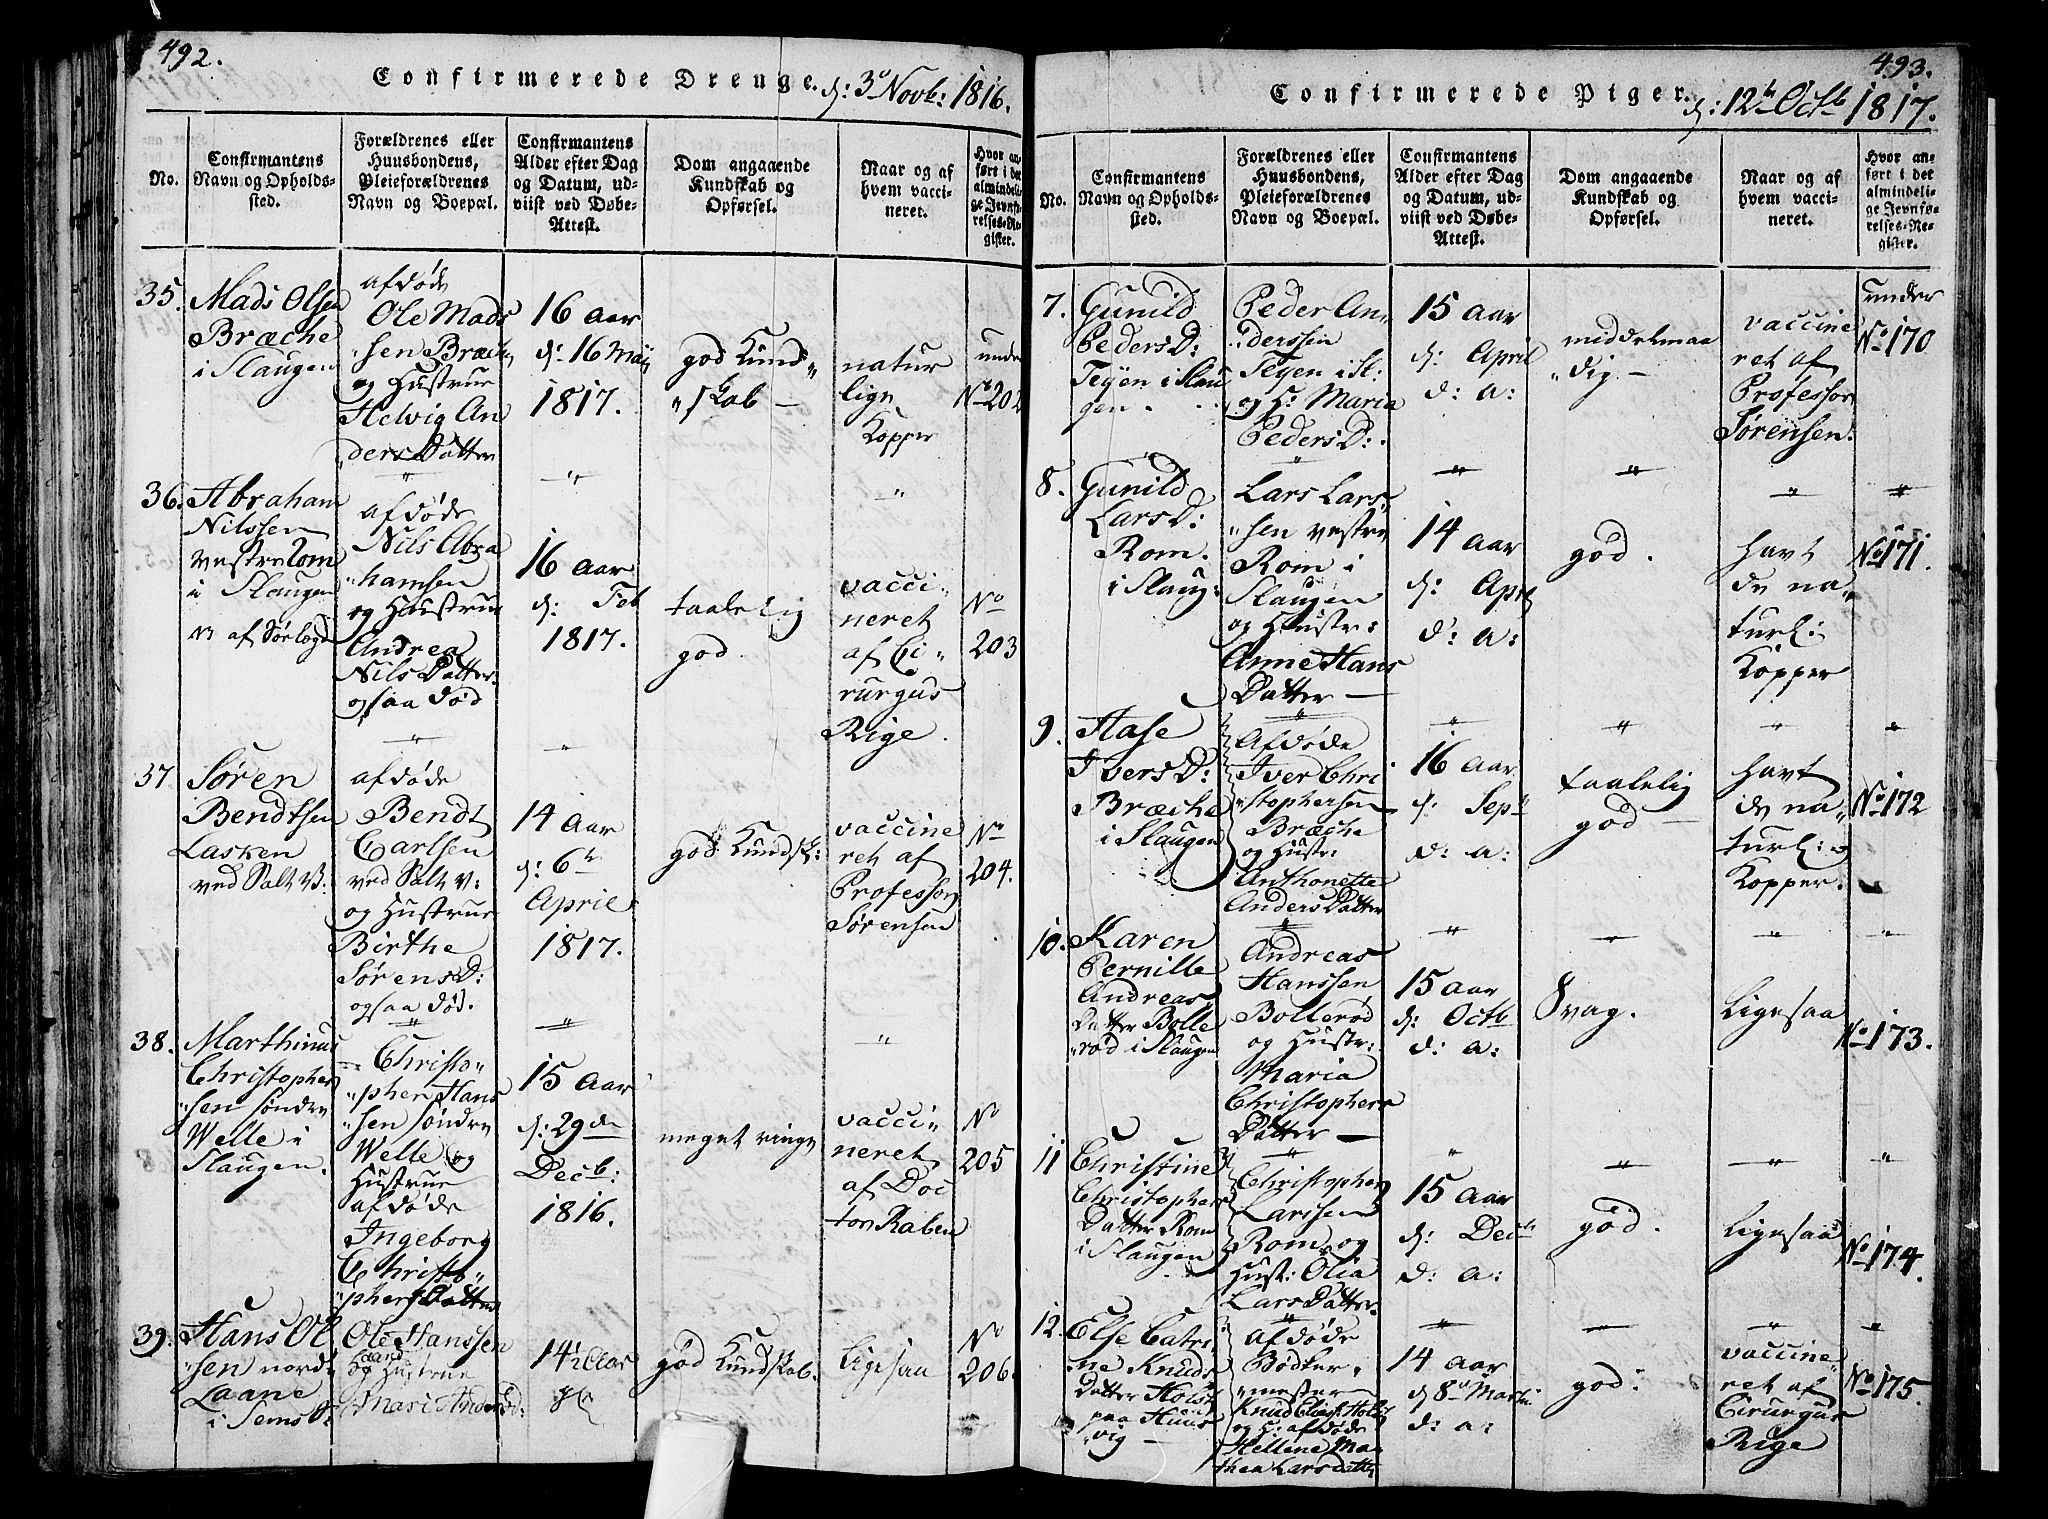 492.
Confirmerede Drenge. d: 3º Novb: 1816.
No.
Confirmantens
Navn og Opholds-
sted.
Forældrenes eller
Huusbondens,
Pleieforældrenes
Navn og Boepæl.
Confirmantens
Alder efter Dag
og Datum, ud-
viist ved Døbe-
Attest.
Dom angaaende
Kundskab og
Opførsel.
Naar og af
hvem vacci-
neret.
Hvor an-
ført i det
almindeli-
ge Jevnfø-
relses-Re-
gister.
35.
Mads Olsen
Bræche
i Slaugen
afdøde
Ole Mads
"sen Bræche
og Hustrue
Helvig An
"ders Datter
16 Aar
d: 16 Maij
1817.
god Kund"
"skab —
natur
lige
Kopper
under
No 202
36.
Abraham
Nilssen
vestre Rom
i Slaugen
afdøde
Nils Abra
"hamsen
og Hustrue
Andrea
Nils Datter
ogsaa død
16 Aar
d: Feb
1817.
taalelig
god.
vacci"
neret
af Ci"
rurgus
Rige.
No
203
37
Søren
Bendtsen
Lasken
ved Salt V.
afdøde
Bendt
Carlsen
ved Salt v:
og Hustrue
Birthe
Sørens D:
ogsaa død.
14 Aar
d: 6te
April
1817.
god Kundsk:
vaccine
ret af
Professor
Sørensen
No
204.
38.
Marthinus
Christopher
"sen søndre
Welle i
Slaugen.
Christo"
"pher Hans
"sen søndre
Welle og
Hustrue
afdøde
Ingeborg
Christo"
"phers Datter
15 Aar
d: 29de
Decb:
1816.
meget ringe
vacci"
neret
af Doc
tor Raben
No
205
39.
Hans Ol
"sen nord:
Laane
i Sems S:
Ole Hanssen
Laane
og Hustrue
Mari Anders D:
14½ Aar
gl
god Kundskab.
Ligesaa
No
206.
493.
Confirmerede Piger. d: 12te Octb 1817.
No.
Confirmantens
Navn og Opholds-
sted.
Forældrenes eller
Huusbondens,
Pleieforældrenes
Navn og Boepæl.
Confirmantens
Alder efter Dag
og Datum, ud-
viist ved Døbe-
Attest.
Dom angaaende
Kundskab og
Opførsel.
Naar og af
hvem vacci-
neret.
Hvor an-
ført i det
almindeli-
ge Jevnfø-
relses-Re-
gister.
7.
Gunild
Peders D:
Teyen i Slau
gen.
Peder An"
"derssen
Teyen i Sl:
og H: Maria
Peders D:
15 Aar
d: April
d: a:
middelmaa
"dig —
vaccine
ret af
Professor
Sørensen.
under
No 170
8.
Gunild
Lars D:
Rom.
i Slaug:
Lars Lars
"sen vestre
Rom i
Slaugen
og Hustr:
Anne Hans
Datter —
14 Aar
d: April
d: a:
god.
havt
de na"
turl:
Kopper
No 171.
9.
Aase
Ivers D:
Bræche
i Slaugen
Afdøde
Iver Chri
"stophersen
Bræche
og Hustr:
Anthonette
Anders Datter
16 Aar
d: Sept
d: a:
taalelig
god —
havt
de na"
turl:
Kopper.
No 172
10.
Karen
Pernille
Andreas
Datter Bolle
"rød i Slaugen
Andreas
Hanssen
Bollerød
og Hustr:
Maria
Christophers
Datter —
15 Aar
d: Octb
d: a:
Svag.
Ligesaa
No 173.
11
Christine
Christophers
Datter Rom
i Slaugen
Christopher
Larssen
Rom og
Hust: Olia
Lars Datter.
15 Aar
d: Decb
d: a:
god.
Ligesaa
No 174.
12.
Else Catri
"ne Knuds
Datter Holst
paa Huus
vig —
Afdøde
Bødker"
"mester
Knud Holst
og H: afdøde
Hellene Ma
thea Larsdatter
14 Aar
d 8de Martii
d: a:
god:
vaccine"
ret af
Cirurgus
Rige
No 175.